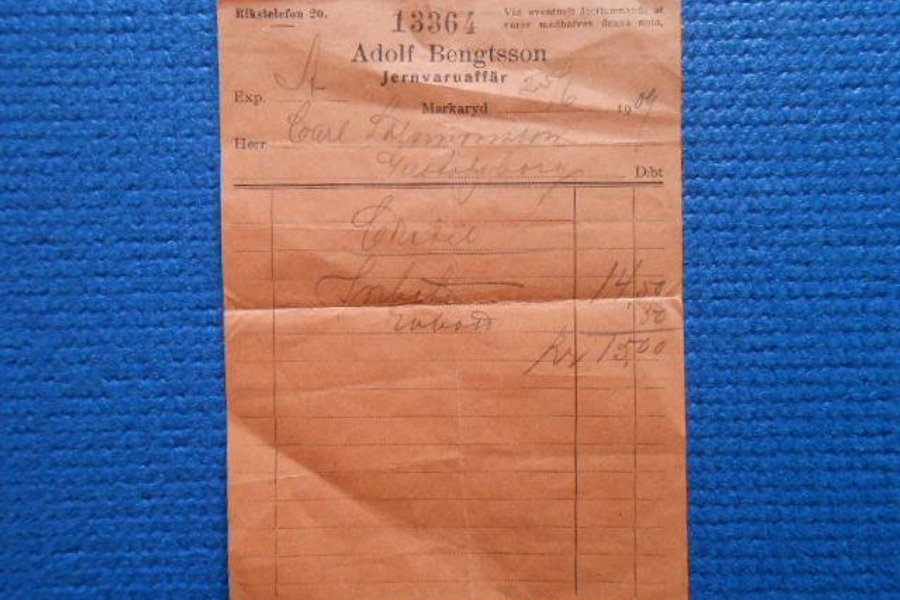 Rikstelefon 20.
13364
Vid eventuelt återlemnande af
varor medhafves denna nota.
Adolf Bengtsson
Jernvaruaffär
Exp. A
Markaryd 25/6 1909
Herr Carl
Gustafsborg
D:bt
14,50
rabatt 50
Kr 15,00